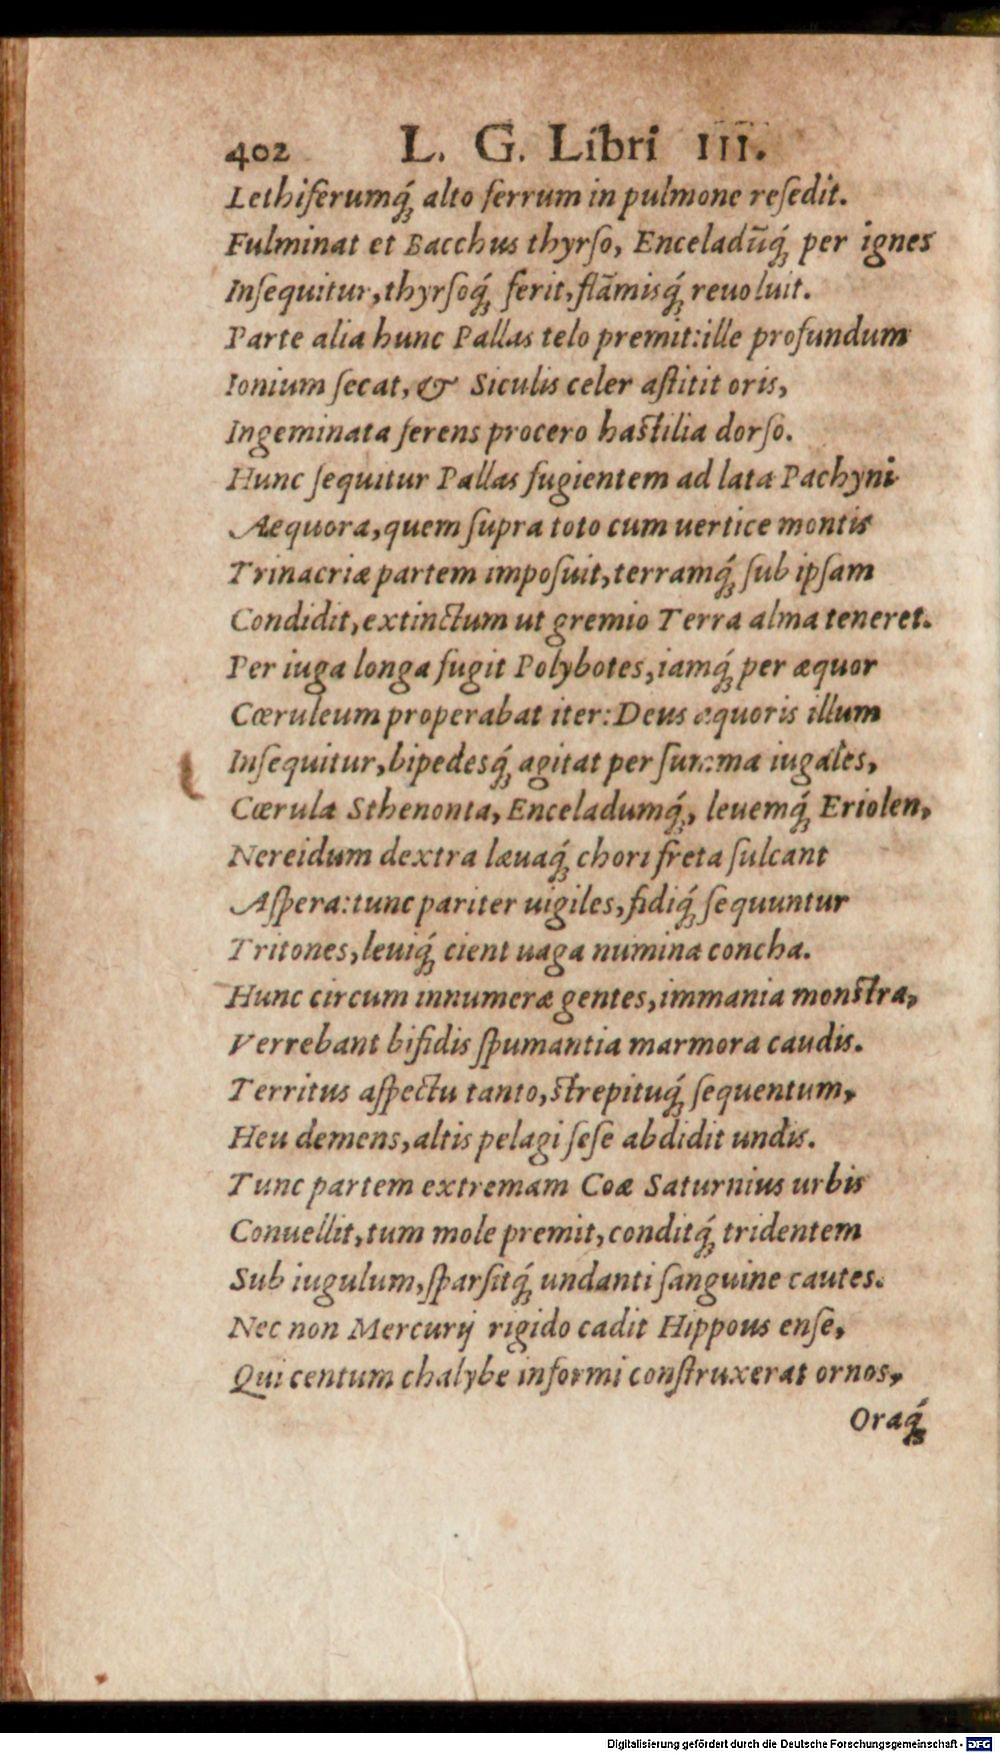 402 L. G. Libri III.
Lethiferumq́; alto ferrum in pulmone reſedit.
Fulminat et Bacchus thyrſo, Enceladũq́; per ignes
Inſequitur, thyrſoq́; ferit, flāmisq́; reuoluit.
Parte alia hunc Pallas telo premit: ille profundum
Ionium ſecat, & Siculis celer aſtitit oris,
Ingeminata ferens procero haſtilia dorſo.
Hunc ſequitur Pallas fugientem ad lata Pachyni
Aequora, quem ſupra toto cum uertice montis
Trinacriæ partem impoſuit, terramq́; ſub ipſam
Condidit, extinctum ut gremio Terra alma teneret.
Per iuga longa fugit Polybotes, iamq́; per æquor
Cœruleum properabat iter: Deus æquoris illum
Inſequitur, bipedesq́; agitat per ſumma iugales,
Cœrula Sthenonta, Enceladumq́;, leuemq́; Eriolen,
Nereidum dextra læuaq́; chori freta ſulcant
Aſpera: tunc pariter uigiles, fidiq́; ſequuntur
Tritones, leuiq́; cient uaga numina concha.
Hunc circum innumeræ gentes, immania monſtra,
Verrebant bifidis ſpumantia marmora caudis.
Territus aſpectu tanto, ſtrepituq́; ſequentum,
Heu demens, altis pelagi ſeſe abdidit undis.
Tunc partem extremam Coæ Saturnius urbis
Conuellit, tum mole premit, conditq́; tridentem
Sub iugulum, ſparſitq́; undanti ſanguine cautes.
Nec non Mercurij rigido cadit Hippous enſe,
Qui centum chalybe informi conſtruxerat ornos,
Oraq́;
Digitalisierung gefördert durch die Deutsche Forschungsgemeinschaft - DFG